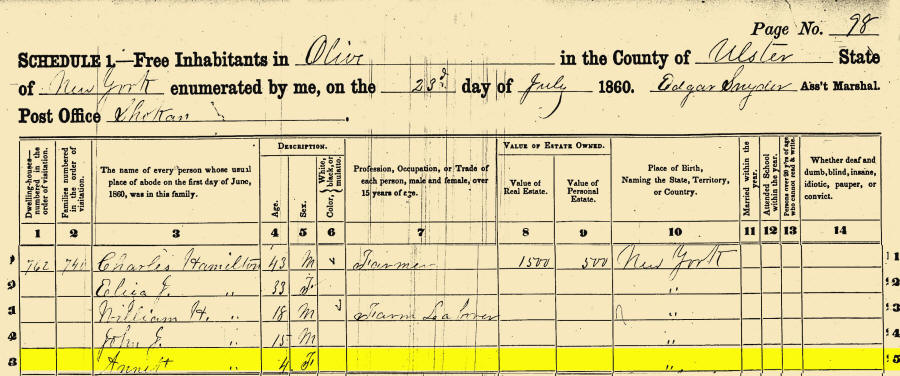 Page No. 98
SCHEDULE 1.—Free Inhabitants in Olive in the County of Ulster State
of New York enumerated by me, on the 23d day of July 1860. Edgar Snyder Ass't Marshal.
Post Office Shokan.
DESCRIPTION. VALUE OF ESTATE OWNED.
Dwelling-houses—numbered in the order of visitation. Families numbered in the order of visitation. The name of every person whose usual place of abode on the first day of June, 1860, was in this family. Age. Sex. Color, White, black, or mulatto. Profession, Occupation, or Trade of each person, male and female, over 15 years of age. Value of Real Estate. Value of Personal Estate. Place of Birth, Naming the State, Territory, or Country. Married within the year. Attended School within the year. Persons over 20 y'rs of age who cannot read & write. Whether deaf and dumb, blind, insane, idiotic, pauper, or convict.
1 2 3 4 5 6 7 8 9 10 11 12 13 14
762 Charles Hamilton 43 M Farmer 1500 500 New York 1
2 Eliza J. " 33 F "
3 William H. " 18 M Farm Laborer "
4 John E. " 15 M "
5 Annett " 4 F " 5